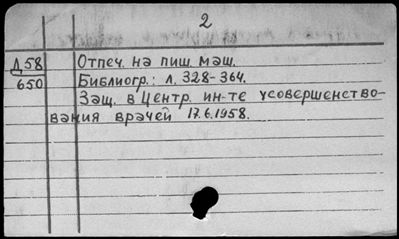 2
Д 58 Отпеч. на пиш. маш.
650 Библиогр.: л. 328-364.
Защ. в Центр. ин-те усовершенство-
вания врачей 17.6.1958.